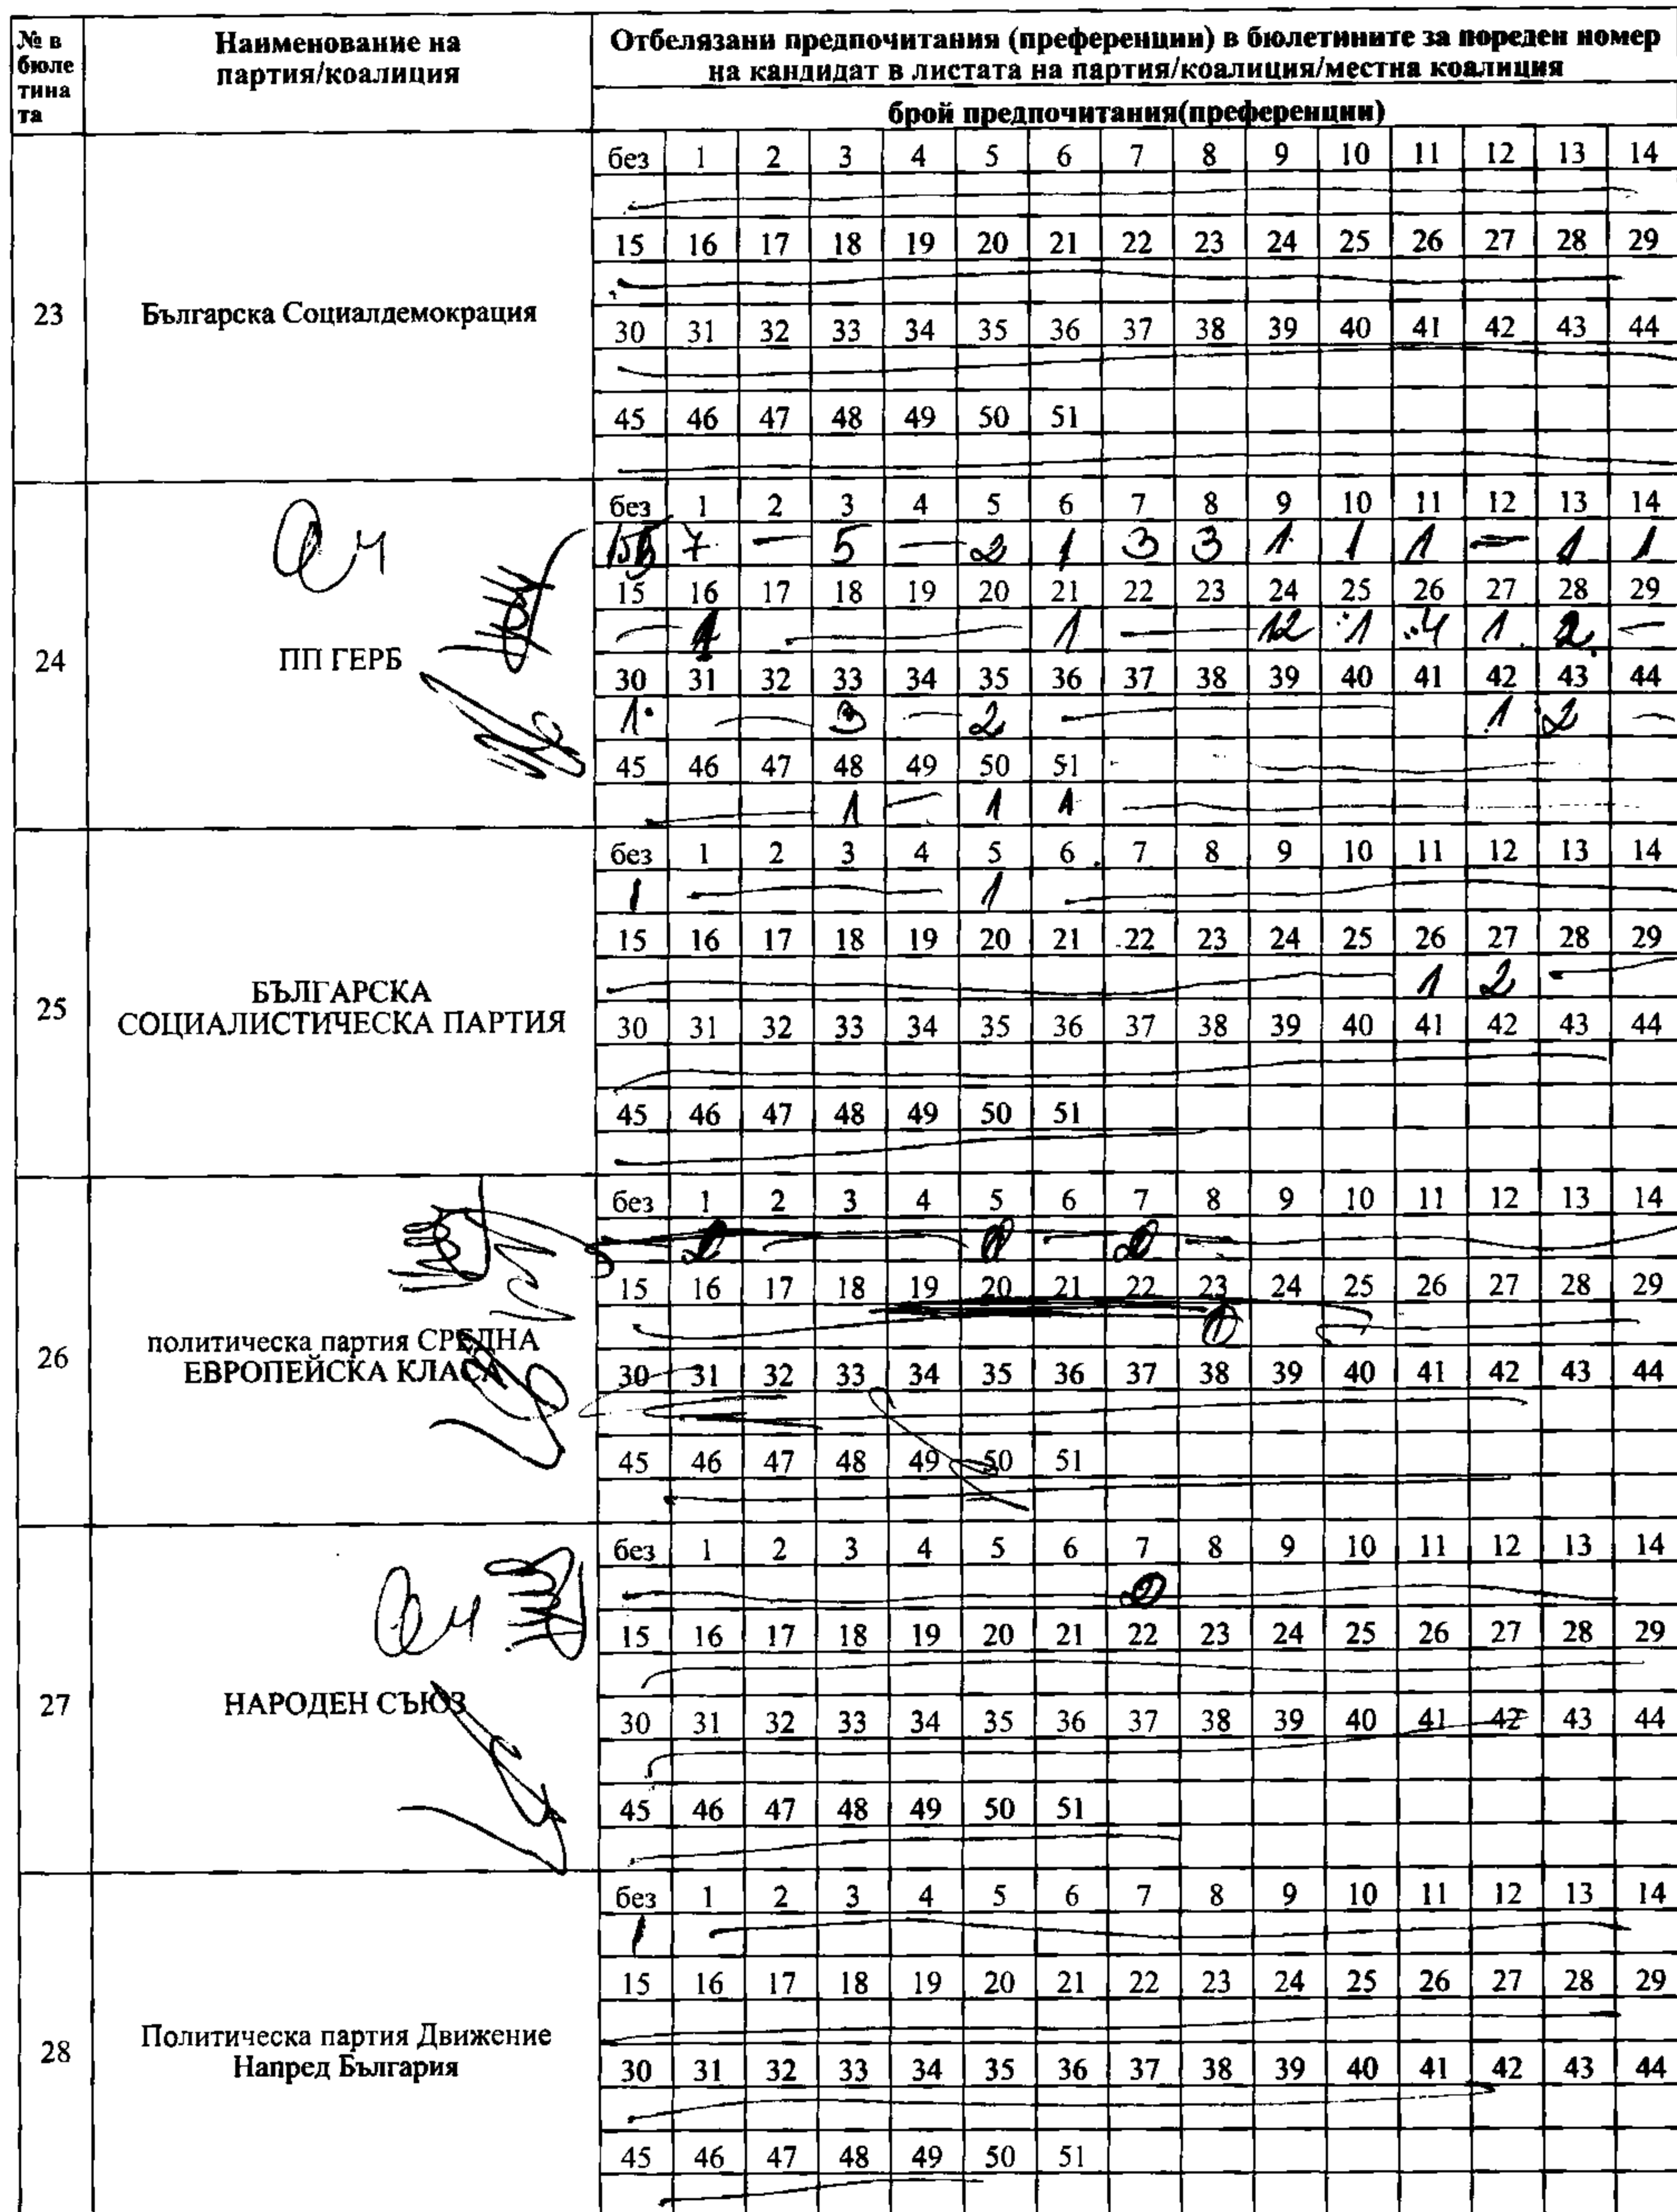 № в бюле тина та
Наименование на партия/коалиция
Отбелязани предпочитания (преференции) в бюлетините за пореден номер на кандидат в листата на партия/коалиция/местна коалиция
брой предпочитания(преференции)
23
Българска Социалдемокрация
без 1 2 3 4 5 6 7 8 9 10 11 12 13 14
15 16 17 18 19 20 21 22 23 24 25 26 27 28 29
30 31 32 33 34 35 36 37 38 39 40 41 42 43 44
45 46 47 48 49 50 51
24
ПП ГЕРБ
без 1 2 3 4 5 6 7 8 9 10 11 12 13 14
7 — 5 — 2 1 3 3 1 1 1 — 1 1
15 16 17 18 19 20 21 22 23 24 25 26 27 28 29
— 1 — 1 — 12 1 4 1 2 —
30 31 32 33 34 35 36 37 38 39 40 41 42 43 44
1 — 3 — 2 — 1 2 —
45 46 47 48 49 50 51
— 1 — 1 1 —
25
БЪЛГАРСКА СОЦИАЛИСТИЧЕСКА ПАРТИЯ
без 1 2 3 4 5 6 7 8 9 10 11 12 13 14
1 — 1 —
15 16 17 18 19 20 21 22 23 24 25 26 27 28 29
— 1 2 —
30 31 32 33 34 35 36 37 38 39 40 41 42 43 44
45 46 47 48 49 50 51
26
политическа партия СРЕДНА ЕВРОПЕЙСКА КЛАСА
без 1 2 3 4 5 6 7 8 9 10 11 12 13 14
15 16 17 18 19 20 21 22 23 24 25 26 27 28 29
30 31 32 33 34 35 36 37 38 39 40 41 42 43 44
45 46 47 48 49 50 51
27
НАРОДЕН СЪЮЗ
без 1 2 3 4 5 6 7 8 9 10 11 12 13 14
15 16 17 18 19 20 21 22 23 24 25 26 27 28 29
30 31 32 33 34 35 36 37 38 39 40 41 42 43 44
45 46 47 48 49 50 51
28
Политическа партия Движение Напред България
без 1 2 3 4 5 6 7 8 9 10 11 12 13 14
1 —
15 16 17 18 19 20 21 22 23 24 25 26 27 28 29
30 31 32 33 34 35 36 37 38 39 40 41 42 43 44
45 46 47 48 49 50 51